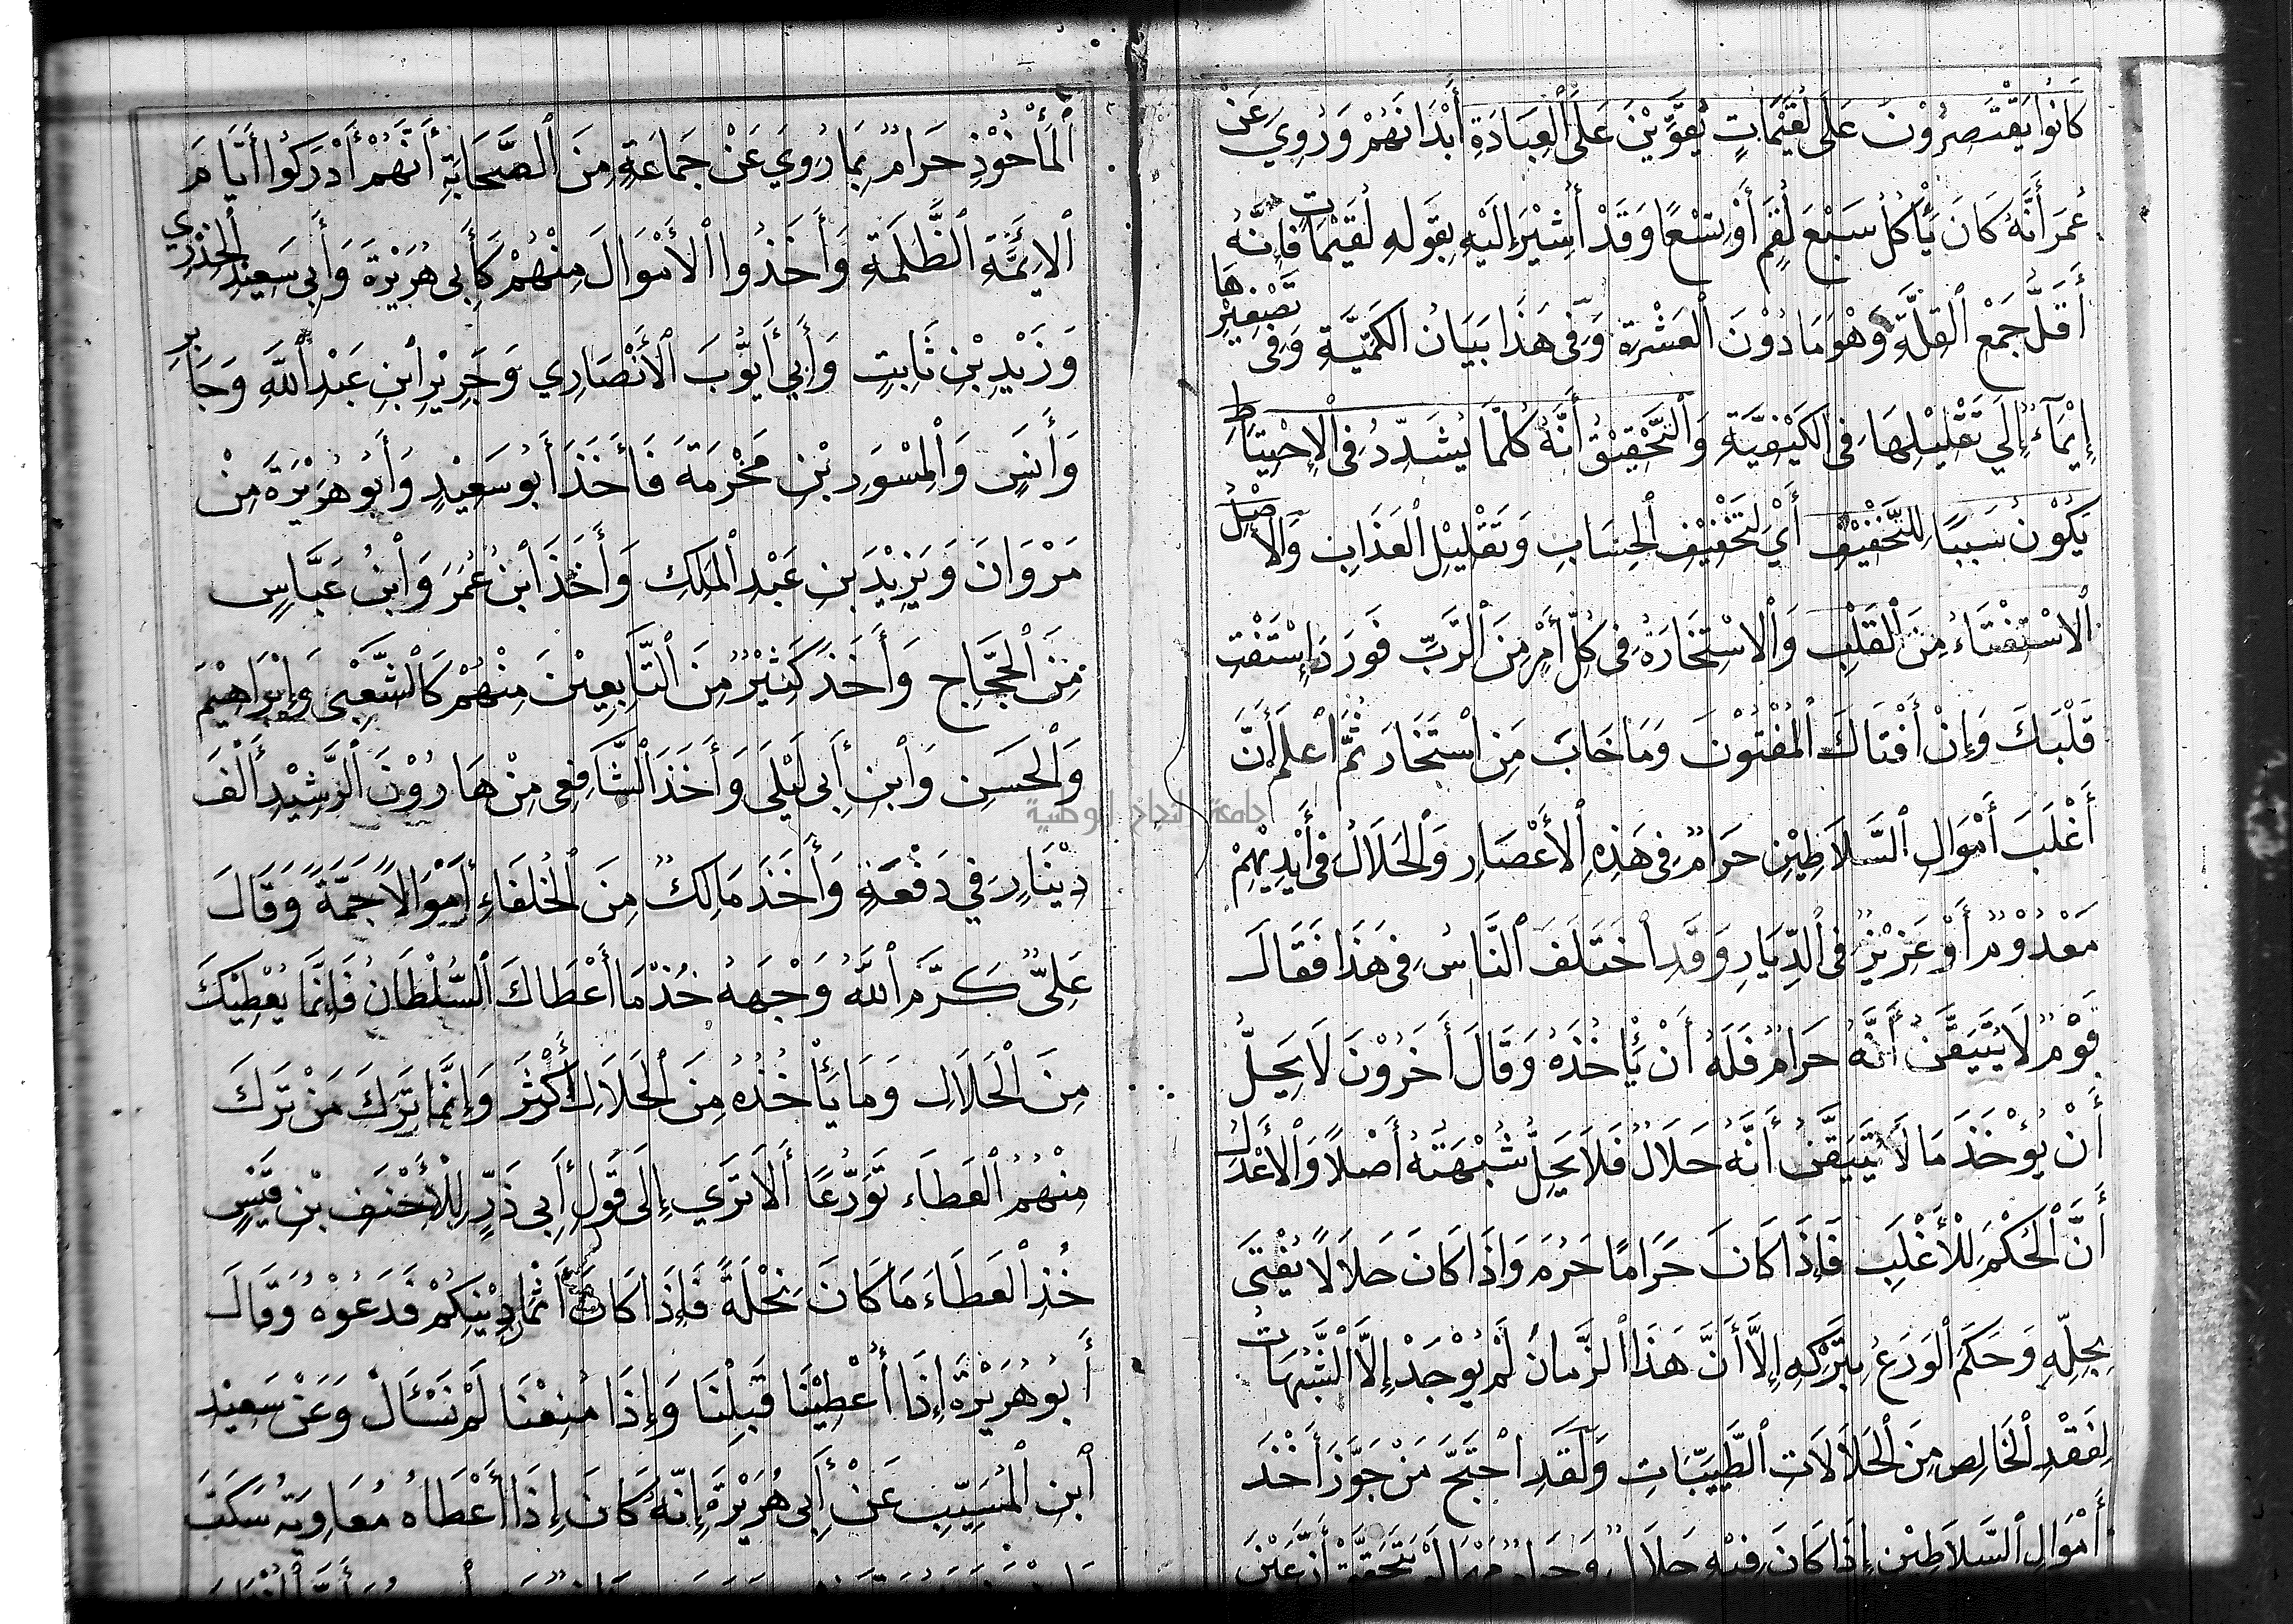 كَانُوا يَقْتَصِرُوْنَ عَلَى لُقَيْمَاتٍ يُقَوِّيْنَ عَلَى ٱلعِبَادَةِ أَبْدَانَهُمْ وَرُوِيَ عَنْ
عُمَرَ أَنَّهُ كَانَ يَأْكُلُ سَبْعَ لُقَمٍ أَوْ تِسْعًا وَقَدْ أُشِيْرَ إِلَيْهِ بِقَوْلِهِ لُقَيْمَاتٍ فَإِنَّهُ
أَقَلَّ جَمْعِ ٱلقِلَّةِ وَهُوَ مَا دُوْنَ ٱلعَشْرَةِ وَفِى هَذَا بَيَانُ الكَمِّيَّةِ وَفِى تَصْغِيْرِهَا
إِيْمَآءٌ إِلَي تَقْلِيْلِهَا فِى الكَيْفِيَّةِ وَٱلتَّحْقِيْقُ أَنَّهُ كُلَّمَا يُشَدِّدُ فِى ٱلاِحْتِيَاطِ
يَكُوْنُ سَبَبًا لِلتَّخْفِيْفِ أَيْ لِتَخْفِيْفِ ٱلحِسَابِ وَتَقْلِيْلِ ٱلعَذَابِ وَالأَصْلُ
ٱلاسْتِفْتَاءُ مِنَ ٱلقَلْبِ وَٱلاسْتِخَارَةُ فِى كُلِّ أَمْرٍ مِنَ ٱلرَّبِّ فَوَرَدَ إِسْتَفْتِ
قَلْبَكَ وَإِنْ أَفْتَاكَ ٱلمُفْتُوْنَ وَمَا خَابَ مَنِ اسْتَخَارَ ثُمَّ اعْلَمْ أَنَّ
أَغْلَبَ أَمْوَالِ ٱلسَّلَاطِيْنِ حَرَامٌ فِى هَذِهِ ٱلأَعْصَارِ وَٱلحَلَالُ فِى أَيْدِيْهِمْ
مَعْدُوْمٌ أَوْ عَزِيْزٌ فِى ٱلدِّيَارِ وَقَدِ ٱخْتَلَفَ ٱلنَّاسُ فِى هَذَا فَقَالَ
قَوْمٌ لَا يُتَيَقَّنُ أَنَّهُ حَرَامٌ فَلَهُ أَنْ يَأْخُذَهُ وَقَالَ أَخَرُوْنَ لَا يَحِلُّ
أَنْ يُؤْخَذَ مَا لَا يُتَيَقَّنُ أَنَّهُ حَلَالٌ فَلَا يَحِلُّ شُبْهَتُهُ أَصْلًا وَٱلأَعْدَلُ
أَنَّ ٱلحُكْمَ لِلْأَغْلَبِ فَإِذَا كَانَ حَرَامًا حَرُمَ وَإِذَا كَانَ حَلَالًا يُفْتَى
بِحِلِّهِ وَحَكَمَ ٱلوَرَعُ بِتَرْكِهِ إِلَّا أَنَّ هَذَا ٱلزَّمَانَ لَمْ يُوْجَدْ إِلَّا ٱلشُّبُهَاتُ
لِفَقْدِ ٱلخَالِصِ مِنَ ٱلحَلَالَاتِ ٱلطَّيِّبَاتِ وَلَقَدِ احْتَجَّ مَنْ جَوَّزَ أَخْذَ
أَمْوَالِ ٱلسَّلَاطِيْنِ إِذَا كَانَ فِيْهِ حَلَالٌ وَحَرَامٌ مَهْمَا لَمْ يَتَحَقَّقْ أَنَّ عَيْنَ
ٱلمَأْخُوْذِ حَرَامٌ بِمَا رُوِيَ عَنْ جَمَاعَةٍ مِنَ ٱلصَّحَابَةِ أَنَّهُمْ أَدْرَكُوا أَيَّامَ
ٱلأَئِمَّةِ ٱلظَّلَمَةِ وَأَخَذُوا ٱلأَمْوَالَ مِنْهُمْ كَأَبِى هُرَيْرَةَ وَأَبِى سَعِيْدٍ الخُدْرِي
وَزَيْدِ بْنِ ثَابِتٍ وَأَبِي أَيُّوْبَ ٱلأَنْصَارِي وَجَرِيْرِ ٱبْنِ عَبْدِ ٱللَّهِ وَجَابِرٍ
وَأَنَسٍ وَٱلمِسْوَرِ بْنِ مَخْرَمَةَ فَأَخَذَ أَبُو سَعِيْدٍ وَأَبُو هُرَيْرَةَ مِنْ
مَرْوَانَ وَيَزِيْدَ بنِ عَبْدِ ٱلمَلِكِ وَأَخَذَ ابْنُ عُمَرَ وَٱبْنُ عَبَّاسٍ
مِنَ ٱلحَجَّاجِ وَأَخَذَ كَثِيْرٌ مِنَ ٱلتَّابِعِيْنَ مِنْهُمْ كَالشَّعْبِى وَإِبْرَاهِيْمَ
وَٱلحَسَنِ وَٱبْنِ أَبِى لَيْلَى وَأَخَذَ ٱلشَّافِعِى مِنْ هَارُوْنَ ٱلرَّشِيْدِ أَلْفَ
دِيْنَارٍ فِي دَفْعَةٍ وَأَخَذَ مَالِكٌ مِنَ ٱلخُلَفَاءِ أَمْوَالًا جَمَّةً وَقَالَ
عَلِىٌّ كَرَّمَ ٱللَّهُ وَجْهَهُ خُذْ مَا أَعْطَاكَ ٱلسُّلْطَانُ فَإِنَّمَا يُعْطِيْكَ
مِنَ ٱلحَلَالِ وَمَا يَأْخُذُهُ مِنَ ٱلحَلَالِ أَكْثَرَ وَإِنَّمَا تَرَكَ مَنْ تَرَكَ
مِنْهُمُ ٱلعَطَاءَ تَوَرُّعًا أَلَا تَرَي إِلَى قَوْلِ أَبِى ذَرٍّ لِلْأَحْنَفِ بْنِ قَيْسٍ
خُذِ ٱلعَطَاءَ مَا كَانَ نِحْلَةً فَإِذَا كَانَ أَثْمَانَ دِيْنِكُمْ فَدَعُوْهُ وَقَالَ
أَبُو هُرَيْرَةَ إِذَا أُعْطِيْنَا قَبِلْنَا وَإِذَا مُنِعْنَا لَمْ نَسْئَالْ وَعَنْ سَعِيْدِ
ٱبْنِ ٱلمُسَيِّبِ عَنْ أَبِى هُرَيْرَةَ إِنَّهُ كَانَ إِذَا أَعْطَاهُ مُعَاوِيَةُ سَكَتَ
جامعة النجاح الوطنية